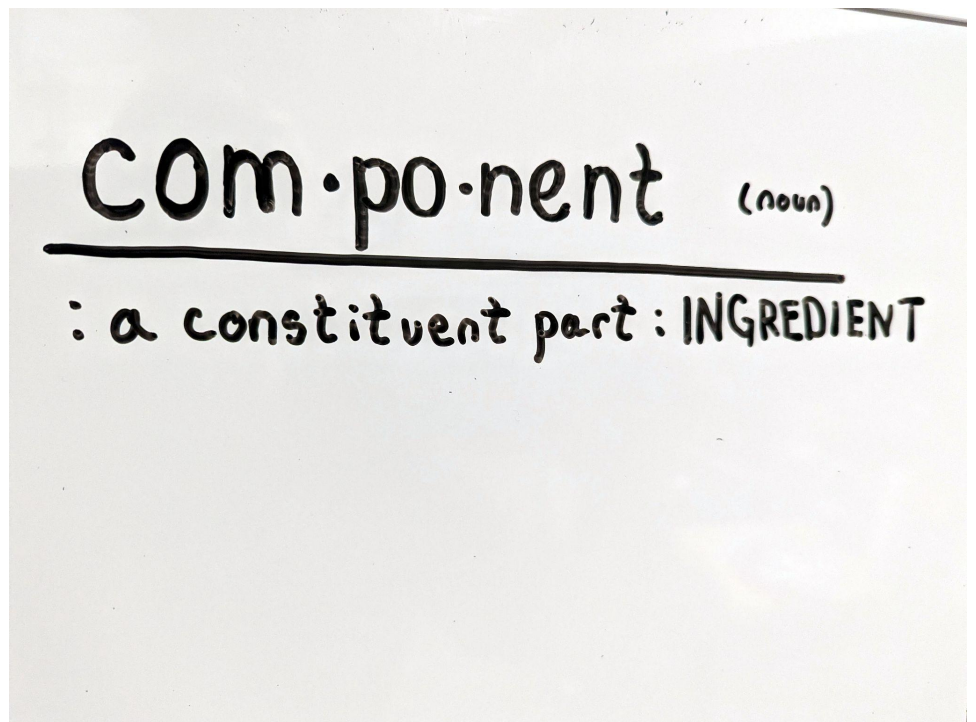 com·po·nent (noun)
: a constituent part : INGREDIENT